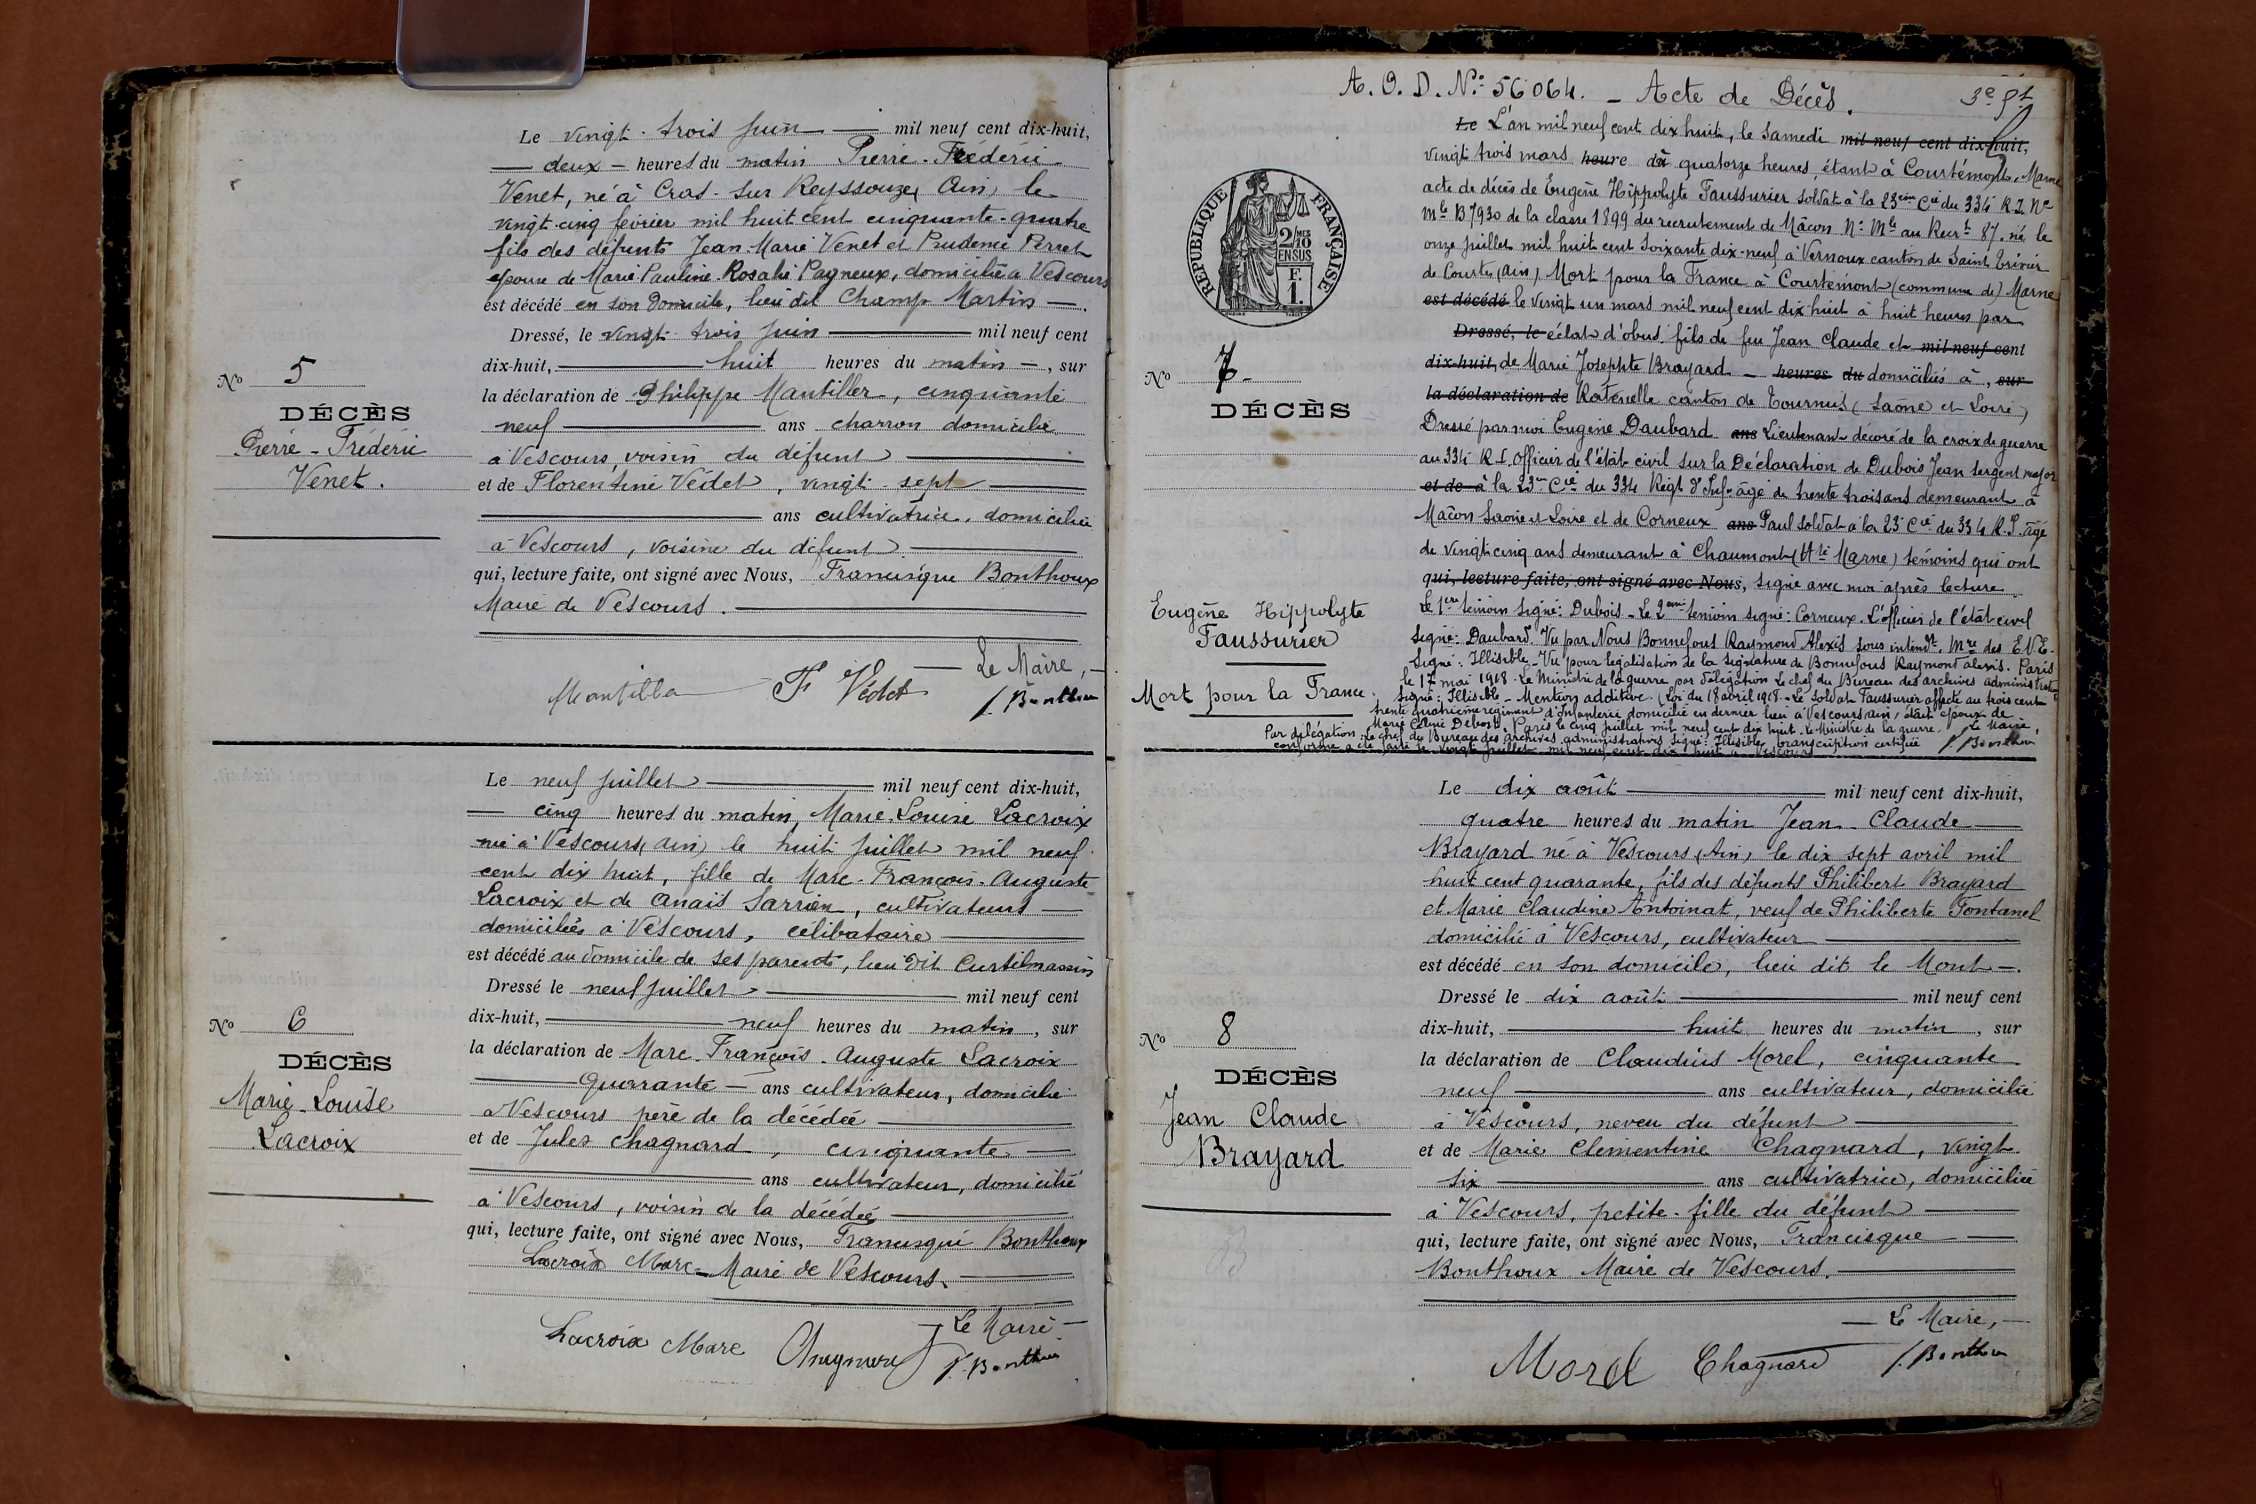 Le vingt-trois juin mil neuf cent dix-huit,
deux heures du matin Pierre-Fréderic
Venet, né à Cras-sur Reyssouze, Ain, le
vingt-cinq février mil huit cent cinquante-quatre
fils des défunts Jean-Marie Venet et Prudence Perret
époux de Marie Pauline Rosalie Pagneux, domicilié à Vescours
est décédé en son domicile, lieu dit Champ Martin
Dressé, le vingt-trois juin mil neuf cent
dix-huit, huit heures du matin, sur
la déclaration de Philippe Mantiller, cinquante
neuf ans charron domicilié
à Vescours, voisin du défunt
et de Florentine Védet, vingt-sept
ans cultivatrice, domiciliée
à Vescours, voisine du défunt
qui, lecture faite, ont signé avec Nous, Francisque Bonthoux
Maire de Vescours.
Le Maire,
F Védet
Nº 5
DÉCÈS
Pierre-Fréderic
Venet.
Le neuf juillet mil neuf cent dix-huit,
cinq heures du matin, Marie-Louise Lacroix
née à Vescours (Ain) le huit juillet mil neuf
cent dix huit, fille de Marc-François-Auguste
Lacroix et de Anais Sarrian, cultivateurs
domiciliés à Vescours, célibataire
est décédé au domicile de ses parents, lieu dit Curtilmassin
Dressé le neuf juillet mil neuf cent
dix-huit, neuf heures du matin, sur
la déclaration de Marc-François-Auguste Lacroix
quarante ans cultivateur, domicilié
à Vescours père de la décédée
et de Jules Chagnard, cinquante
ans cultivateur, domicilié
à Vescours, voisin de la décédée
qui, lecture faite, ont signé avec Nous, Francisque Bonthoux
Lacroix Marc Maire de Vescours.
Le Maire
Lacroix Marc
Nº 6
DÉCÈS
Marie-Louise
Lacroix
A. O. D. Nº: 56064. - Acte de Décès.
RÉPUBLIQUE FRANÇAISE
2/10 MES
EN SUS
F.
1.
Le L'an mil neuf cent dix huit, le samedi mil neuf cent dix-huit,
vingt trois mars heure du à quatorze heures, étant à Courtémont, Marne
acte de décès de Eugène Hippolyte Faussurier soldat à la 23eme Cie du 334 R.I. No
Mle B7930 de la classe 1899 du recrutement de Mâcon No Mle au Recrt 87. né le
onze juillet mil huit cent soixante dix-neuf à Vernoux canton de Saint Trivier
de Courtes (Ain) Mort pour la France à Courtémont (commune de) Marne
est décédé le vingt un mars mil neuf cent dix huit à huit heures par
Dressé, le éclat d'obus. fils de feu Jean Claude et mil neuf cent
dix-huit, de Marie Josephte Brayard - heures du domiciliés à, sur
la déclaration de Ratenelle canton de Tournus (Saône et Loire)
Dressé par moi Eugène Daubard ans Lieutenant décoré de la croix de guerre
au 334 R.I. Officier de l'état civil sur la Déclaration de Dubois Jean sergent major
et de à la 23me Cie du 334 Régt d'Infie âgé de trente trois ans demeurant à
Mâcon Saône et Loire et de Corneux ans Paul soldat à la 23e Cie du 334 R.I. âgé
de vingt cinq ans demeurant à Chaumont (Hte Marne) témoins qui ont
qui, lecture faite, ont signé avec Nous, signé avec moi après lecture
Le 1er témoin signé: Dubois - Le 2eme témoin signé: Corneux. L'officier de l'état civil
signé: Daubard. Vu par Nous Bonnefous Raymond Alexis sous intendt. Mre des E.V.E.
Signé: Illisible - Vu pour légalisation de la signature de Bonnefous Raymond Alexis. Paris
le 17 mai 1918. Le Ministre de la guerre par délégation Le chef du Bureau des archives administratives
Signé: Illisible - Mention additive. (Loi du 18 avril 1918.- Le soldat Faussurier affecté au trois cent
trente quatrième régiment d'Infanterie domicilié en dernier lieu à Vescours, Ain, était époux de
Marie Céline Debost. Paris le cinq juillet mil neuf cent dix huit. Le Ministre de la guerre. Le Maire,
Par délégation Le chef du Bureau des archives administratives signé: Illisible. transcription certifiée
conforme a été faite le vingt juillet mil neuf cent dix huit à Vescours
Nº 7
DÉCÈS
Eugène Hippolyte
Faussurier
Mort pour la France.
Le dix août mil neuf cent dix-huit,
quatre heures du matin Jean-Claude
Brayard né à Vescours (Ain) le dix sept avril mil
huit cent quarante, fils des défunts Philibert Brayard
et Marie Claudine Antoinat, veuf de Philiberte Fontanel
domicilié à Vescours, cultivateur
est décédé en son domicile, lieu dit le Mont
Dressé le dix août mil neuf cent
dix-huit, huit heures du matin, sur
la déclaration de Claudius Morel, cinquante
neuf ans cultivateur, domicilié
à Vescours, neveu du défunt
et de Marie Clémentine Chagnard, vingt
six ans cultivatrice, domiciliée
à Vescours, petite-fille du défunt
qui, lecture faite, ont signé avec Nous, Francisque
Bonthoux Maire de Vescours.
Le Maire,
Morel Chagnard
Nº 8
DÉCÈS
Jean Claude
Brayard